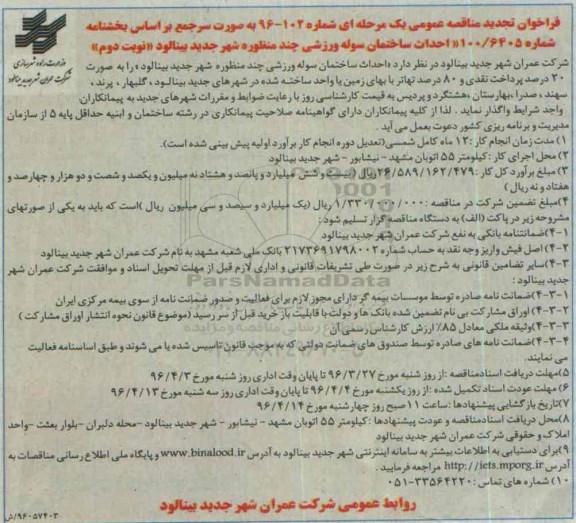 فراخوان تجدید مناقصه عمومی یک مرحله ای شماره ۱۰۲-۹۶ به صورت سرجمع بر اساس بخشنامه
شماره ۱۰۰/۶۴۰۵ «احداث ساختمان سوله ورزشی چند منظوره شهر جدید بینالود «نوبت دوم»
وزارت راه و شهرسازی
شرکت عمران شهر جدید بینالود
شرکت عمران شهر جدید بینالود در نظر دارد «احداث ساختمان سوله ورزشی چند منظوره شهر جدید بینالود» را به صورت
۲۰ درصد پرداخت نقدی و ۸۰ درصد تهاتر با بهای زمین یا واحد ساخته شده در شهرهای جدید بینالود، گلبهار، پرند،
سهند، صدرا، بهارستان، هشتگرد و پردیس به قیمت کارشناسی روز با رعایت ضوابط و مقررات شهرهای جدید به پیمانکاران
واجد شرایط واگذار نماید. لذا از کلیه پیمانکاران دارای گواهینامه صلاحیت پیمانکاری در رشته ساختمان و ابنیه حداقل پایه ۵ از سازمان
مدیریت و برنامه ریزی کشور دعوت بعمل می آید.
۱) مدت زمان انجام کار: ۱۲ ماه کامل شمسی (تعدیل دوره انجام کار برآورد اولیه پیش بینی شده است).
۲) محل اجرای کار: کیلومتر ۵۵ اتوبان مشهد - نیشابور - شهر جدید بینالود
۳) مبلغ برآورد کل کار: ۲۶/۵۸۹/۱۶۲/۴۷۹ ریال (بیست و شش میلیارد و پانصد و هشتاد نه میلیون و یکصد و شصت و دو هزار و چهارصد و
هفتاد و نه ریال)
۴) مبلغ تضمین شرکت در مناقصه: ۱/۳۳۰/۰۰۰/۰۰۰ ریال (یک میلیارد و سیصد و سی میلیون ریال) است که باید به یکی از صورتهای
مشروحه زیر در پاکت (الف) به دستگاه مناقصه گزار تسلیم شود:
۴-۱) ضمانتنامه بانکی به نفع شرکت عمران شهر جدید بینالود
۴-۲) اصل فیش واریز وجه نقد به حساب شماره ۲۱۷۳۶۹۱۷۹۸۰۰۲ بانک ملی شعبه مشهد به نام شرکت عمران شهر جدید بینالود
۴-۳) سایر تضامین قانونی به شرح زیر در صورت طی تشریفات قانونی و اداری لازم قبل از مهلت تحویل اسناد و موافقت شرکت عمران شهر
جدید بینالود:
۴-۳-۱) ضمانت نامه صادره توسط موسسات بیمه گر دارای مجوز لازم برای فعالیت و صدور ضمانت نامه از سوی بیمه مرکزی ایران
۴-۳-۲) اوراق مشارکت بی نام تضمین شده بانک ها و دولت با قابلیت باز خرید قبل از سر رسید (موضوع قانون نحوه انتشار اوراق مشارکت)
۴-۳-۳) وثیقه ملکی معادل ۸۵٪ ارزش کارشناس رسمی آن
۴-۳-۴) ضمانت نامه های صادره توسط صندوق های ضمانت دولتی که به موجب قانون تاسیس شده یا می شوند و طبق اساسنامه فعالیت
می نمایند.
۵) مهلت دریافت اسنادمناقصه: از روز شنبه مورخ ۹۶/۳/۲۷ تا پایان وقت اداری روز شنبه مورخ ۹۶/۴/۳
۶) مهلت عودت اسناد تکمیل شده: از روز یکشنبه مورخ ۹۶/۴/۴ تا پایان وقت اداری روز سه شنبه مورخ ۹۶/۴/۱۳
۷) تاریخ بازگشایی پیشنهادها: ساعت ۱۱ صبح روز چهارشنبه مورخ ۹۶/۴/۱۴
۸) محل دریافت اسنادمناقصه و عودت پیشنهادها: کیلومتر ۵۵ اتوبان مشهد - نیشابور - شهر جدید بینالود - محله دلبران - بلوار بعثت - واحد
املاک و حقوقی شرکت عمران شهر جدید بینالود
۹) برای دستیابی به اطلاعات بیشتر به سامانه اینترنتی شهر جدید بینالود به آدرس www.binalood.ir و پایگاه ملی اطلاع رسانی مناقصات به
آدرس http://iets.mporg.ir مراجعه فرمایید.
۱۰) شماره های تماس: ۳۳۵۶۴۲۲۰-۰۵۱
روابط عمومی شرکت عمران شهر جدید بینالود
۹۶۰۵۷۴۰۳/ش
ParsNamadData